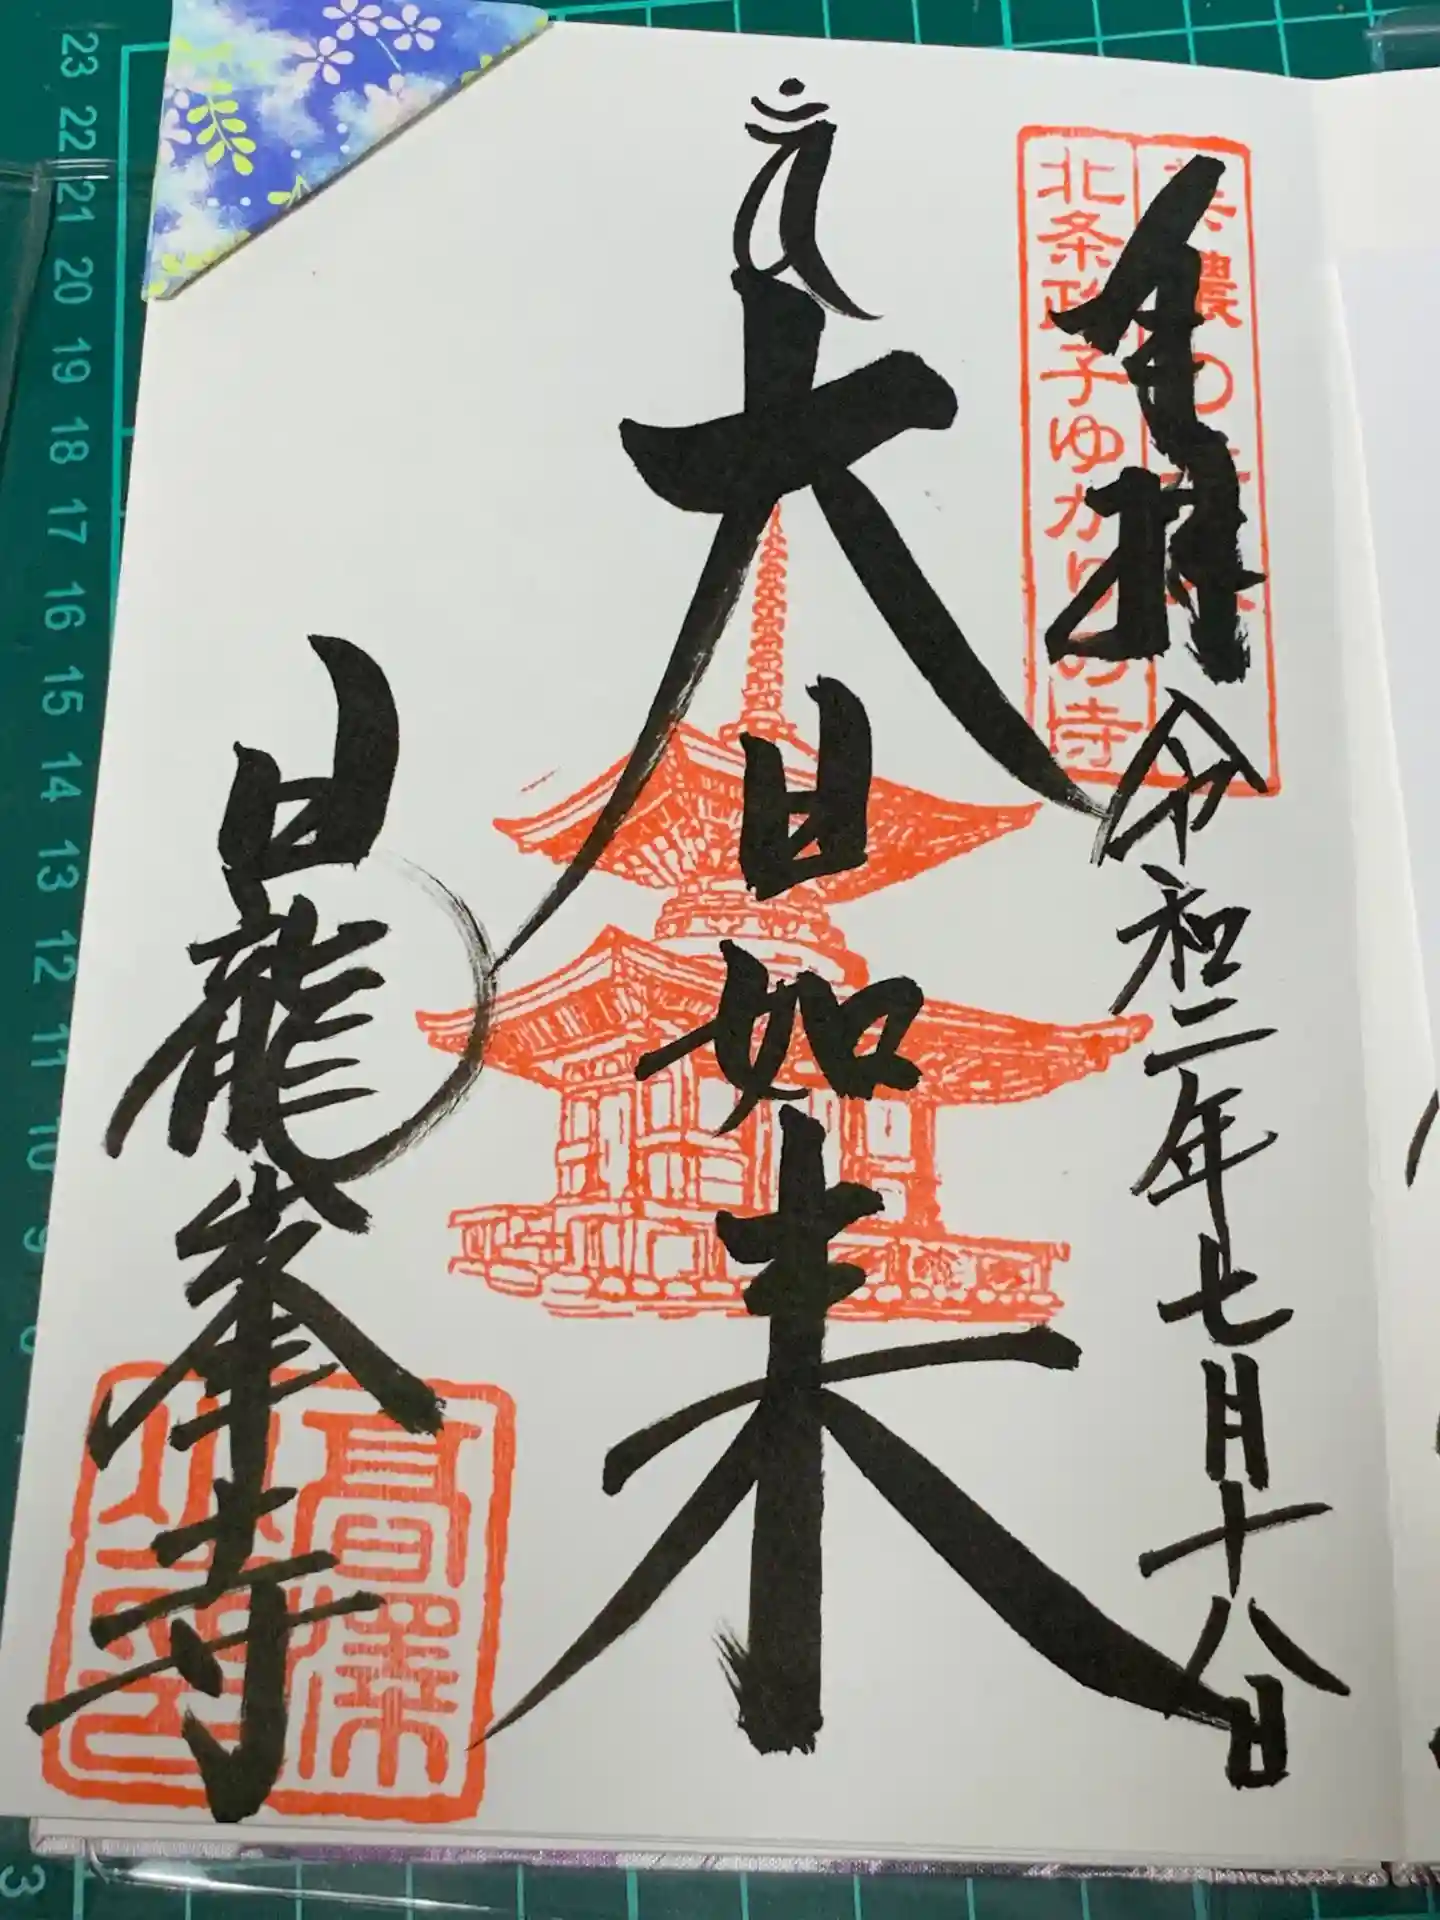 奉拝
令和二年七月十八日
美濃の清水
北条政子ゆかりの寺
大日如来
日龍峯寺
高澤
山印
23
22
21
20
19
18
17
16
15
14
13
12
11
10
9
3